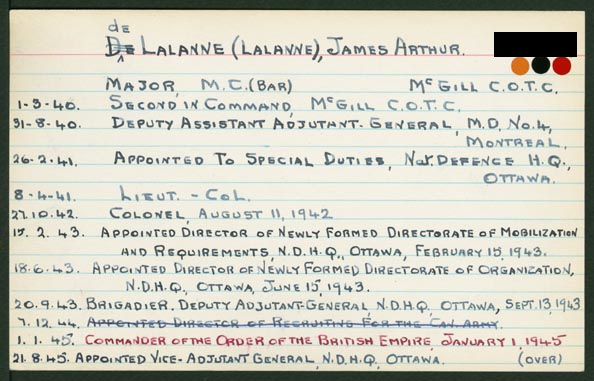 de
De Lalanne (Lalanne), James Arthur.
Major, M.C. (Bar) McGill C.O.T.C.
1-3-40. Second in Command, McGill C.O.T.C.
31-8-40. Deputy Assistant Adjutant-General, M.D. No. 4,
Montreal.
26-2-41. Appointed To Special Duties, Nat. Defence H.Q.,
Ottawa.
8-4-41. Lieut.-Col.
27.10.42. Colonel, August 11, 1942
15.2.43. Appointed Director of Newly Formed Directorate of Mobilization
and Requirements, N.D.H.Q., Ottawa, February 15, 1943.
18.6.43. Appointed Director of Newly Formed Directorate of Organization,
N.D.H.Q., Ottawa, June 15, 1943.
20.9.43. Brigadier, Deputy Adjutant-General, N.D.H.Q., Ottawa, Sept. 13, 1943
7.12.44. Appointed Director of Recruiting For the Can. Army.
1.1.45. Commander of the Order of the British Empire, January 1, 1945
21.8.45. Appointed Vice-Adjutant General, N.D.H.Q., Ottawa. (over)